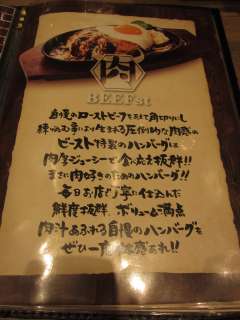 肉
BEEFst
自慢のローストビーフをあえて角切りにし
練り込む事により生まれる圧倒的な肉感の
ビースト特製のハンバーグは
肉厚ジューシーで食べ応え抜群!!
まさに肉好きのためのハンバーグ!!
毎日お店で丁寧に仕込んだ
鮮度抜群、ボリューム満点
肉汁あふれる自慢のハンバーグを
ぜひ一度ご体感あれ!!